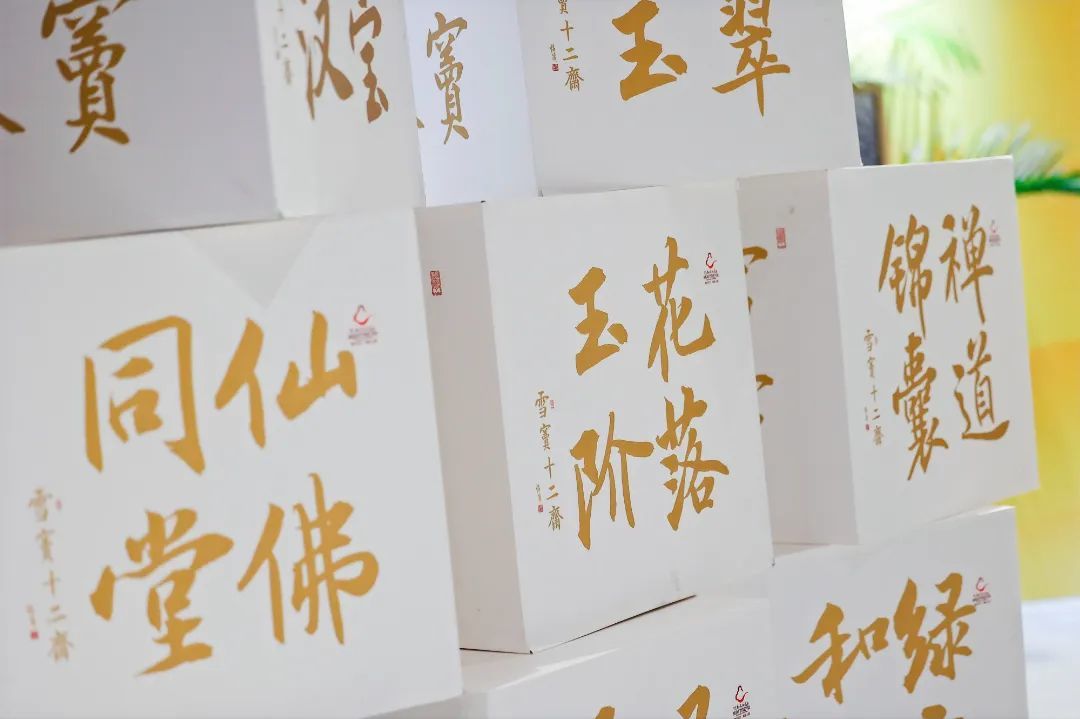 竇
宝
汉
二齋
竇
翠
玉
竇十二齋
仙佛
同堂
雪竇十二齋
花落
玉阶
雪竇十二齋
禅道
锦囊
雪竇十二齋
绿
和